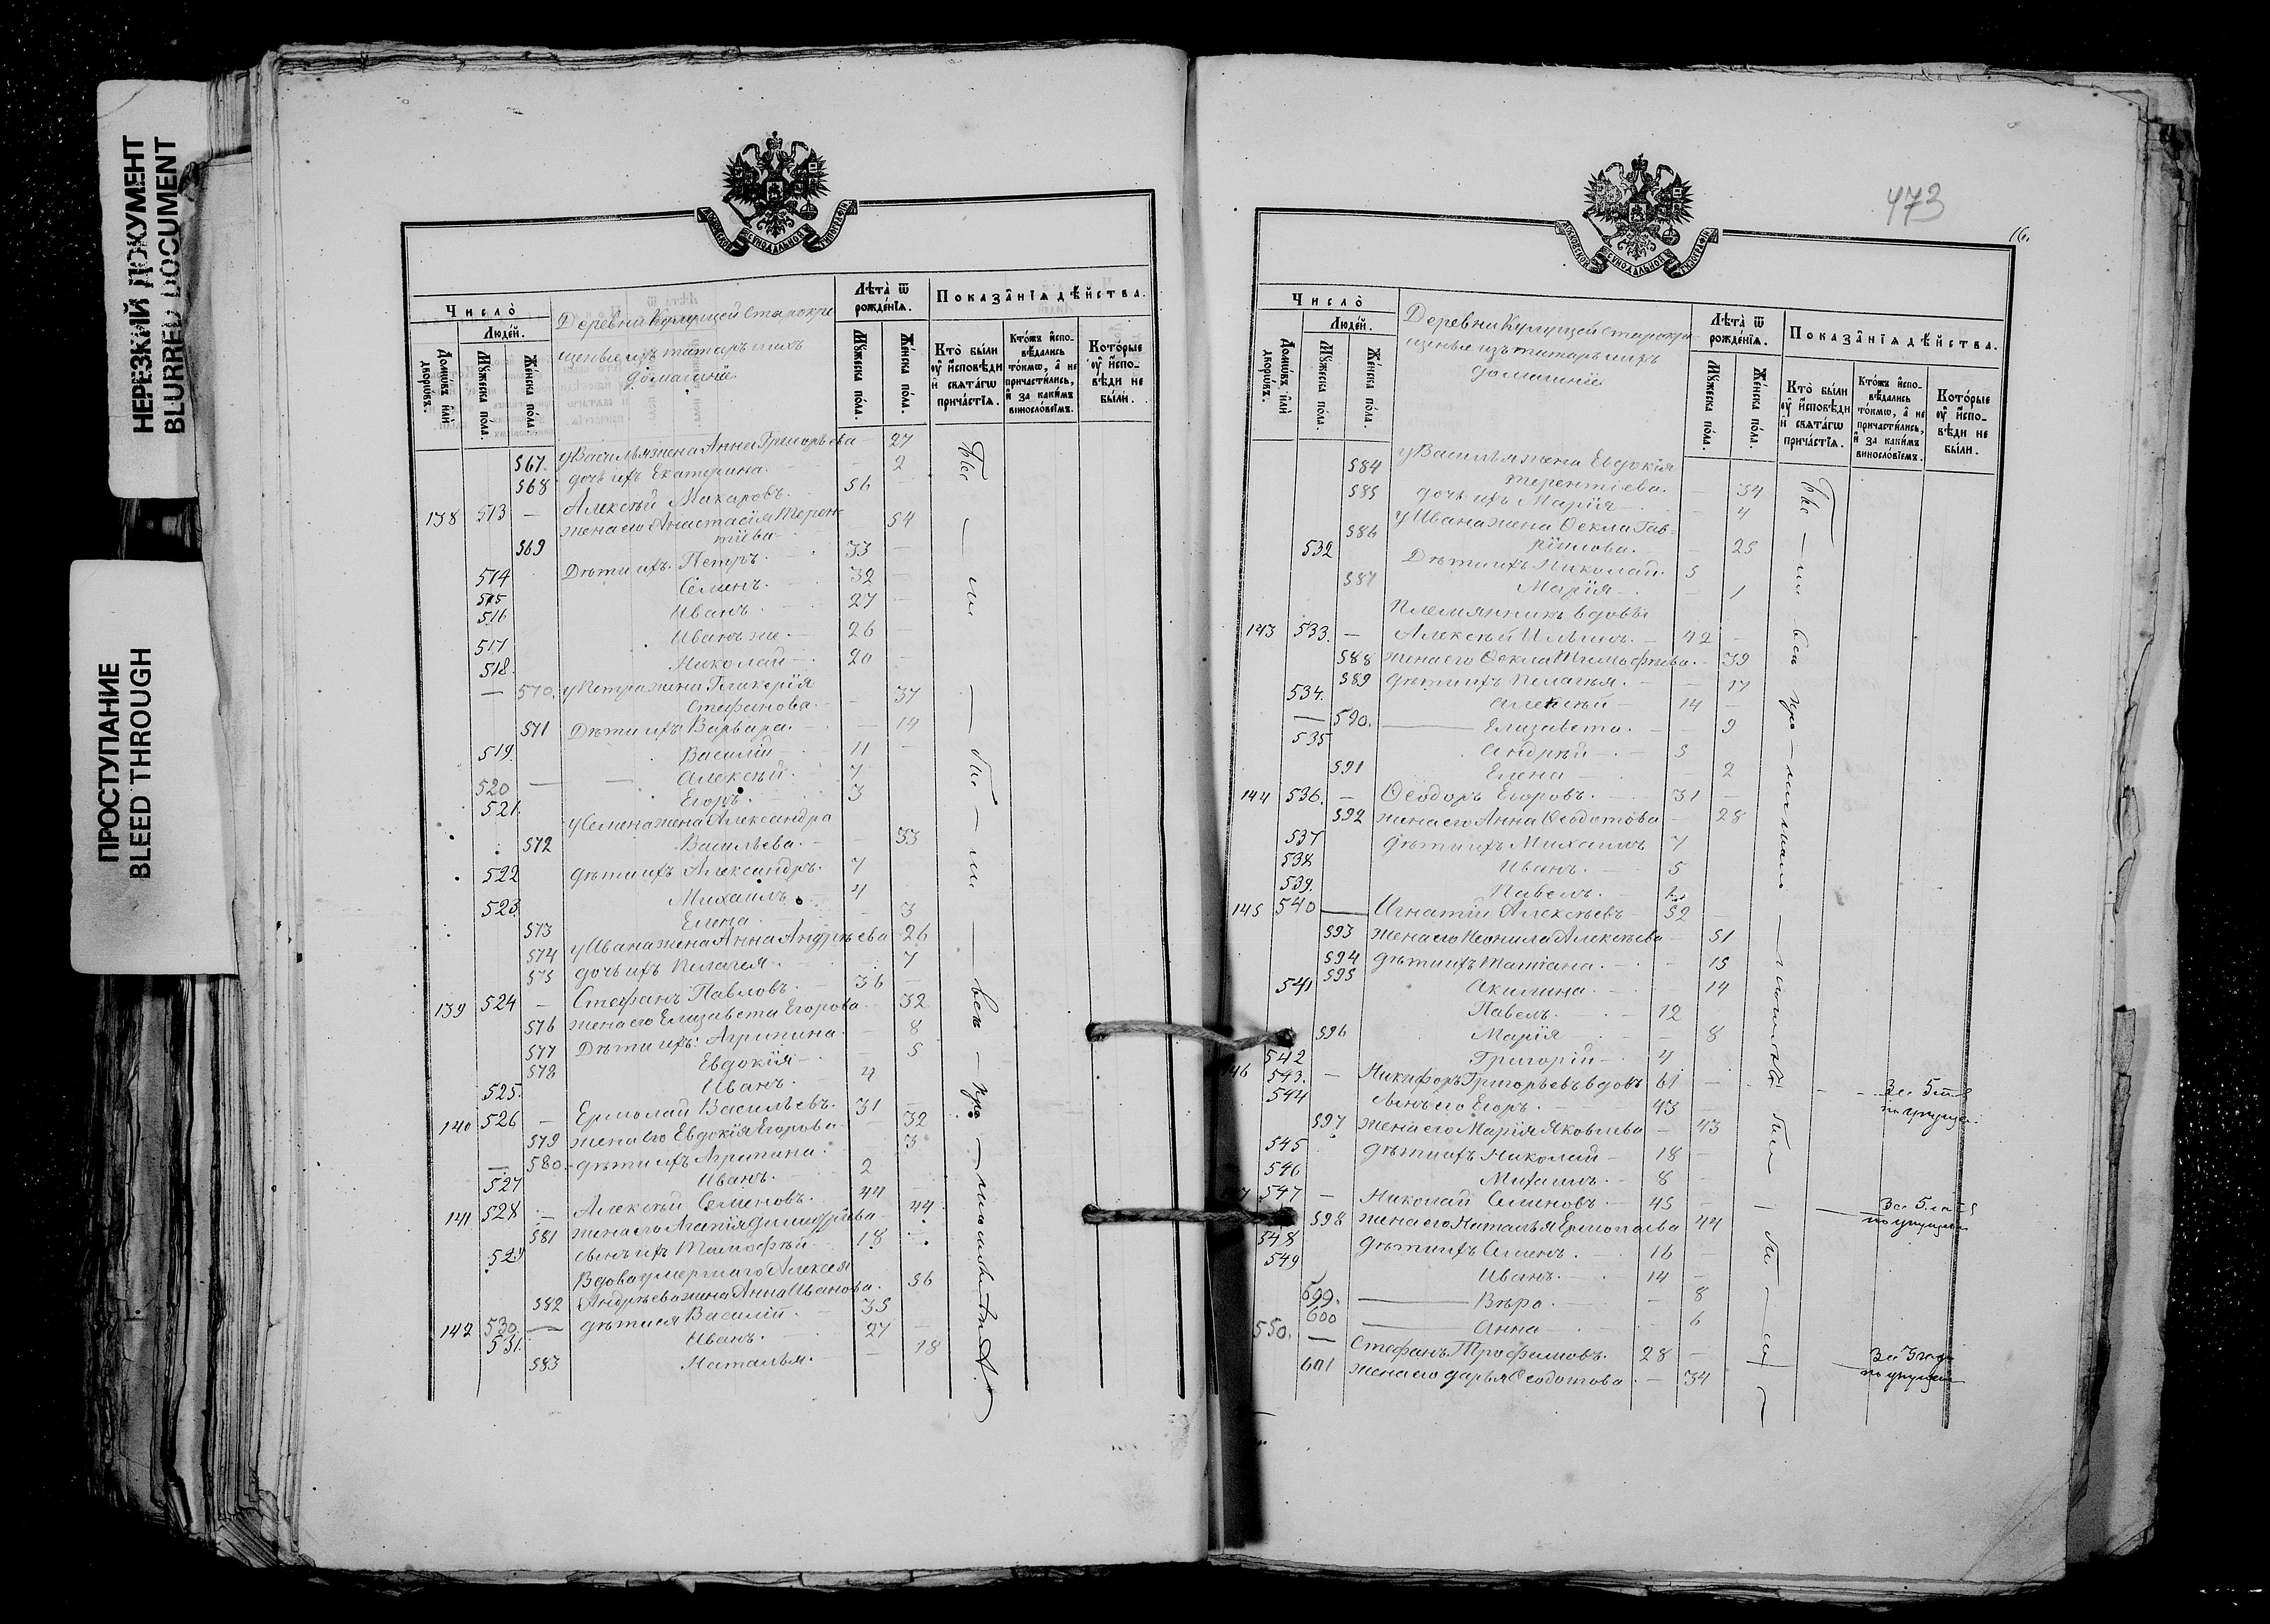 НЕРЕЗКИЙ ДОКУМЕНТ
BLURRED DOCUMENT
ПРОСТУПАНИЕ
BLEED THROUGH
МОСКОВСКОЙ СѴНОДАЛЬНОЙ ТИПОГРАФІИ
Число̀
Люде́й.
Домѡ́въ и҆лѝ дворѡ́въ.
Мꙋ́жеска по́ла.
Же́нска по́ла.
Деревни старокре
щеные изъ татаръ и ихъ
домашніе
Лѣта̀ ѿ рожде́нїѧ.
Мꙋ́жеска по́ла.
Же́нска по́ла.
Показа̑нїѧ дѣ́йства.
Кто̀ бы́ли оу҆ и҆сповѣ́ди и҆ свѧта́гѡ прича́стїѧ.
Кто́жъ и҆спо-вѣ́дались то́кмѡ, а҆ не причасти́лись, и҆ за каки́мъ винослόвїемъ.
Кото́рые оу҆ и҆спо-вѣ́ди не бы́ли.
567. у Василья жена Анна Григорьева 27
568 дочь ихъ Екатерина. 2
138 513 — Алексѣй Макаровъ. 56
569 жена его Анастасія Терен
тіева 54
514 Дѣти ихъ. Петръ. 33
515 Семенъ. 32
516 Иванъ. 27
517 Иванъ же. 26
518. Николай 20
— 570. у Петра жена Гликерія
Стефанова. 37
571 Дѣти ихъ Варвара. 14
519. Василій 11
520 Алексѣй. 7
521. Егоръ. 3
у Семена жена Александра
572 Васильева. 33
522 дѣти ихъ Александръ. 7
523. Михаилъ 4
573 Елена 3
574 у Ивана жена Анна Андреева 26
575 дочь ихъ Пелагея. 7
139 524 — Стефанъ Павловъ. 36
576 жена его Елизавета Егорова 32
577 Дѣти ихъ: Агрипина. 8
578 Евдокія 5
525. Иванъ. 4
140 526 — Ермолай Васильевъ. 31
579 жена его Евдокія Егорова 32
580. дѣти ихъ Агрипина. 3
527 Иванъ. 2
141 528 — Алексѣй Семеновъ. 44
581 жена его 44
529 сынъ ихъ Тимофѣй 18
Вдова умершаго Алексея
582 Андреева жена Анна Иванова. 56
142 530 — дѣти ея Василій 35
531. Иванъ. 27
583 Наталья. 18
473
16.
МОСКОВСКОЙ СѴНОДАЛЬНОЙ ТИПОГРАФІИ
Число̀
Люде́й.
Домѡ́въ и҆лѝ дворѡ́въ.
Мꙋ́жеска по́ла.
Же́нска по́ла.
Деревни старокре
щеные изъ татаръ и ихъ
домашніе
Лѣта̀ ѿ рожде́нїѧ.
Мꙋ́жеска по́ла.
Же́нска по́ла.
Показа̑нїѧ дѣ́йства.
Кто̀ бы́ли оу҆ и҆сповѣ́ди и҆ свѧта́гѡ прича́стїѧ.
Кто́жъ и҆спо-вѣ́дались то́кмѡ, а҆ не причасти́лись, и҆ за каки́мъ винослόвїемъ.
Кото́рые оу҆ и҆спо-вѣ́ди не бы́ли.
584 у Василья жена Евдокія
Терентіева. 34
585 дочь ихъ Марія 4
586 у Ивана жена Ѳекла Гав-
ріилова. 25
532 Дѣти ихъ Николай. 3
587 Марія 1
Племянникъ вдовы
143 533. — Алексѣй Ильинъ. 42
588 жена его Ѳекла Тимофѣева. 39
589 дѣти ихъ Пелагея. 17
534. Алексѣй 14
590. Елизавета. 9
535 Андрѣй 5
591 Елена 2
144 536. — Ѳеодоръ Егоровъ. 31
592 жена его Анна Ѳедотова 28
537 дѣти ихъ Михаилъ 7
538 Иванъ. 5
539. Павелъ.
145 540 — Игнатій Алексѣевъ 52
593 жена его Неонила Алексѣева 51
594 дѣти ихъ Татіана. 15
595 Акилина. 14
541 Павелъ. 12
596 Марія 8
542 Григорій 4
146 543. — Никифоръ Григорьевъ вдовъ 61
544 сынъ его Егоръ. 43
597 жена его Марія Яковлева 43
545 дѣти ихъ Николай 18
546 Михаилъ 8
547 — Николай Семеновъ 45
598 жена его Наталья Ермолаева 44
548 дѣти ихъ Семенъ. 16
549 Иванъ. 14
599. Вѣра. 8
600 Анна 6
550. — Стефанъ Трофимовъ. 28
601 жена его Дарья Ѳедотова 34